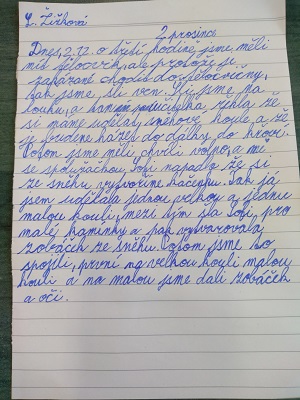 L. Žižková
2. prosince
Dnes, 2. 12. o třetí hodině, jsme měli
mít tělocvik, ale protože je
zakázané chodit do tělocvičny,
tak jsme šli ven. Šli jsme na
louku, a paní učitelka řekla že
si máme udělat sněhové koule, a že
je budeme házet do dálky do
Potom jsme měli chvíli volno, a mě
se spolužačkou Sofi napadlo že si
ze sněhu vytvoříme kačenku. Tak já
jsem udělala jednou velkou a jednu
malou kouli, mezi tím šla Sofi, pro
malé kamínky a pak vytvarovala
zobáček ze sněhu. Potom jsme to
spojili, první na velkou kouli malou
kouli a na malou jsme dali zobáček
a oči.